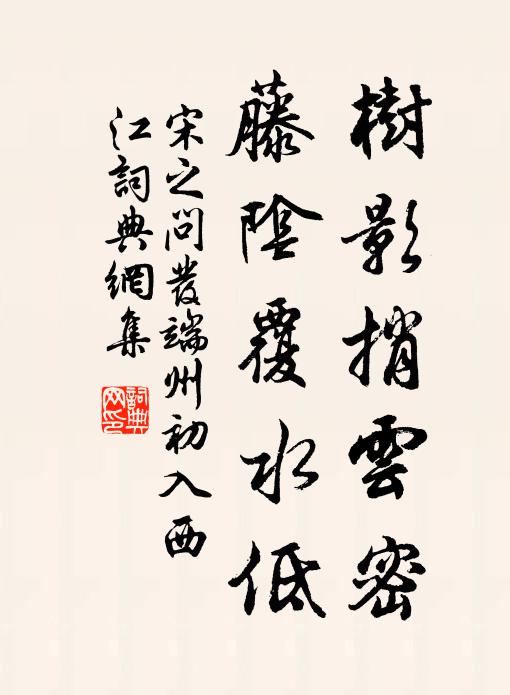 樹影捎雲密
藤陰覆水低
宋之問發端州初入西
江詞典網集
詞典
网印